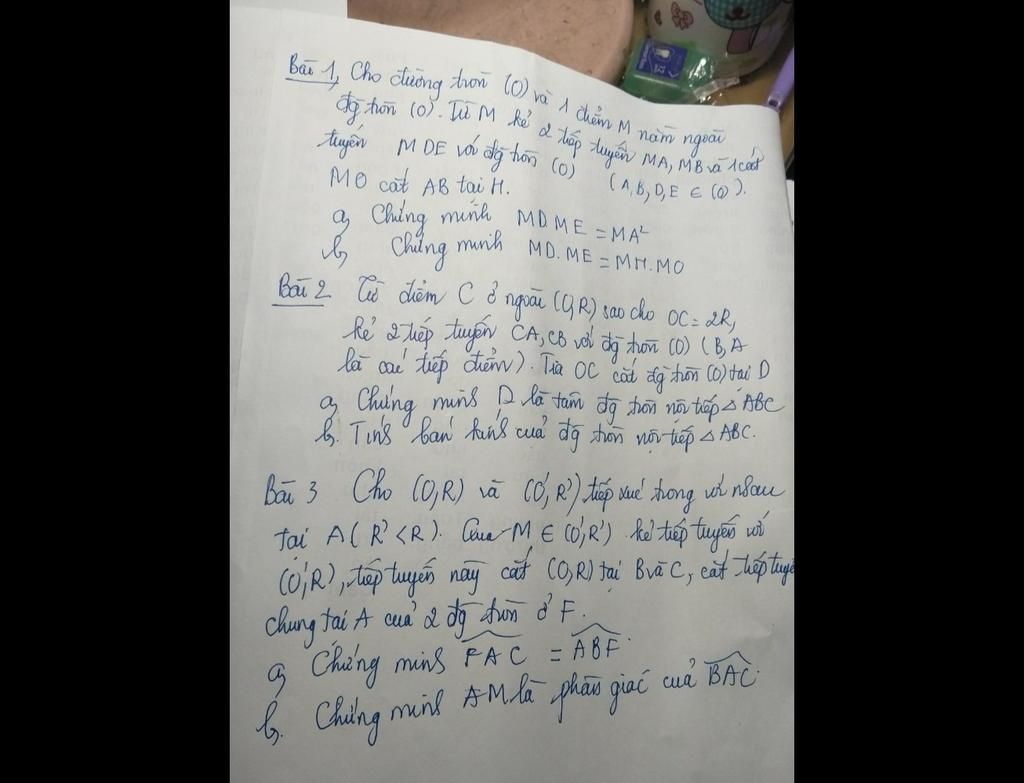 Bài 1, Cho đường tròn (O) và 1 điểm M nằm ngoài
đg tròn (O). Từ M kẻ 2 tiếp tuyến MA, MB và 1 cát
tuyến MDE với đg tròn (O) (A, B, D, E ∈ (O)).
MO cắt AB tại H.
a, Chứng minh MD.ME = MA²
b, Chứng minh MD.ME = MH.MO
Bài 2 Từ điểm C ở ngoài (O,R) sao cho OC = 2R,
kẻ 2 tiếp tuyến CA, CB với đg tròn (O) (B, A
là các tiếp điểm). Tia OC cắt đg tròn (O) tại D
a, Chứng minh D là tâm đg tròn nội tiếp △ ABC
b. Tính bán kính của đg tròn nội tiếp △ ABC.
Bài 3 Cho (O,R) và (O', R') tiếp xúc trong với nhau
tại A (R' < R). Qua M ∈ (O', R') kẻ tiếp tuyến với
(O', R), tiếp tuyến này cắt (O,R) tại B và C, cắt tiếp tuyế
chung tại A của 2 đg tròn ở F.
a, Chứng minh \widehat{FAC} = \widehat{ABF}.
b. Chứng minh AM là phân giác của \widehat{BAC}.